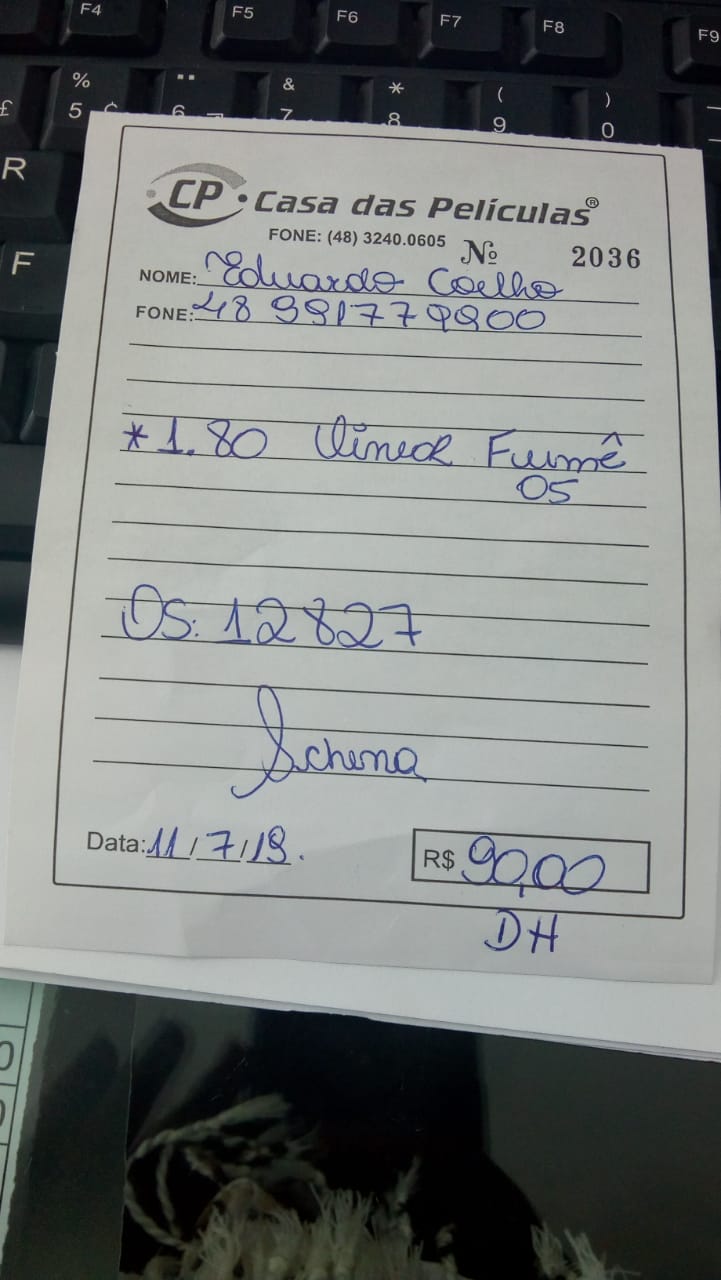 F4 F5 F6 F7 F8 F9
% & * ( )
£ 5 6 7 8 9 0
R
F
CP Casa das Películas®
FONE: (48) 3240.0605 Nº 2036
NOME: Eduardo Coelho
FONE: 48 991779900
*1.80 Fumê
05
OS: 12827
Schena
Data: 11/7/19.
R$ 90,00
DH